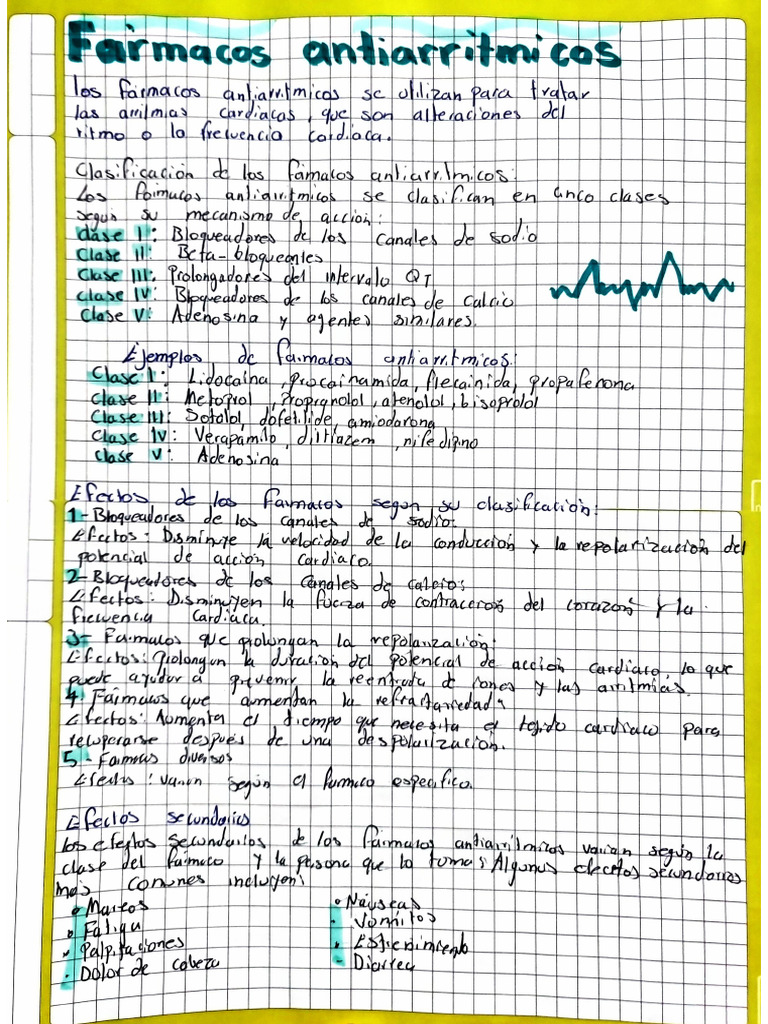 Fármacos antiarritmicos
los fármacos antiarritmicos se utilizan para tratar
las arritmias cardíacas, que son alteraciones del
ritmo o la frecuencia cardíaca.
Clasificación de los fármacos antiarritmicos:
Los fármacos antiarritmicos se clasifican en cinco clases
según su mecanismo de acción:
Clase I: Bloqueadores de los canales de sodio
Clase II: Beta-bloqueantes
Clase III: Prolongadores del intervalo QT
Clase IV: Bloqueadores de los canales de calcio
Clase V: Adenosina y agentes similares.
Ejemplos de fármacos antiarritmicos:
Clase I: Lidocaína, procainamida, flecainida, propafenona
Clase II: Metoprol, propranolol, atenolol, bisoprolol
Clase III: Sotalol, dofetilide, amiodarona
Clase IV: Verapamilo, diltiazem, nifedipino
Clase V: Adenosina
Efectos de los fármacos segon su clasificación:
1-Bloqueadores de los canales de sodio:
Efectos: Disminuye la velocidad de la conducción y la repolarización del
potencial de acción cardíaco.
2-Bloqueadores de los canales de calcio:
Efectos: Disminuyen la fuerza de contracción del corazón y la
frecuencia cardíaca.
3- Fármacos que prolongan la repolarización:
Efectos: Prolongan la duración del potencial de acción cardíaco, lo que
puede ayudar a prevenir la reentrada de y las arritmias.
4- Fármacos que aumentan la refractariedad:
Efectos: Aumentan el tiempo que necesita el tejido cardíaco para
recuperarse después de una despolarización.
5- Fármacos diversos
Efectos: varian según el fármaco específico.
Efectos secundarios
los efectos secundarios de los fármacos antiarritmicos varian según la
clase del fármaco y la persona que lo toma; Algunos efectos secundarios
más comunes incluyen:
• Mareos
• Fatiga
• Palpitaciones
• Dolor de cabeza
• Náuseas
• Vómitos
• Estreñimiento
• Diarrea